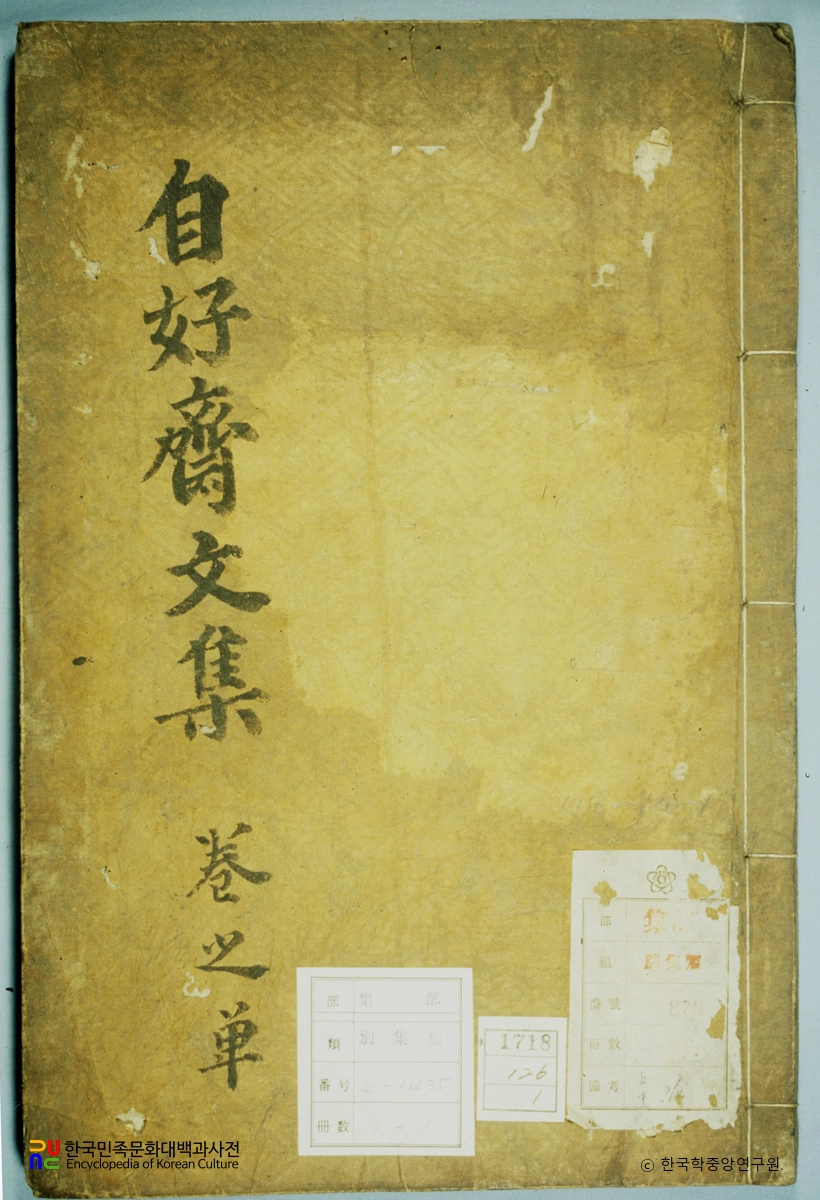 自好齋文集
卷之單
部 集 部
類 別 集 類
番号
冊数 1-1
1718
126
1
部 集
類 別集類
番號
冊數
備考
한국민족문화대백과사전
Encyclopedia of Korean Culture
© 한국학중앙연구원.